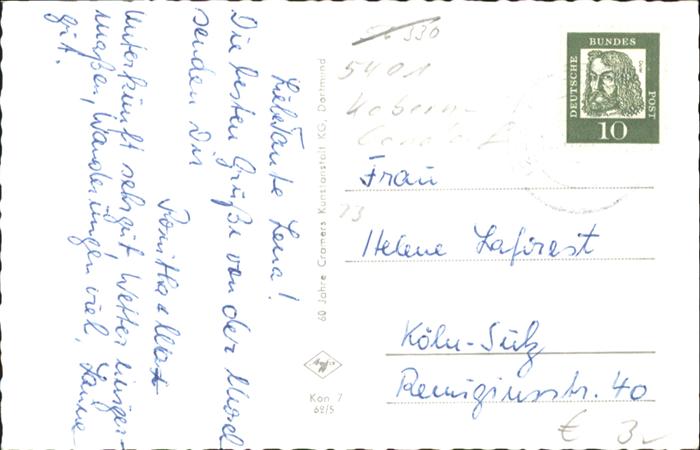 Liebe Tante Lena!
Die besten Grüße von der Mosel
senden Dir
Unterkunft sehr gut, Wetter einiger-
maßen, Wanderungen viel, Laune
gut.
60 Jahre Cramers Kunstanstalt KG, Dortmund
Kon 7
62/5
330
5401
DEUTSCHE
BUNDES
POST
10
Frau
73
Helene Lafirest
Köln-Sülz
Remigiusstr. 40
€ 3,-